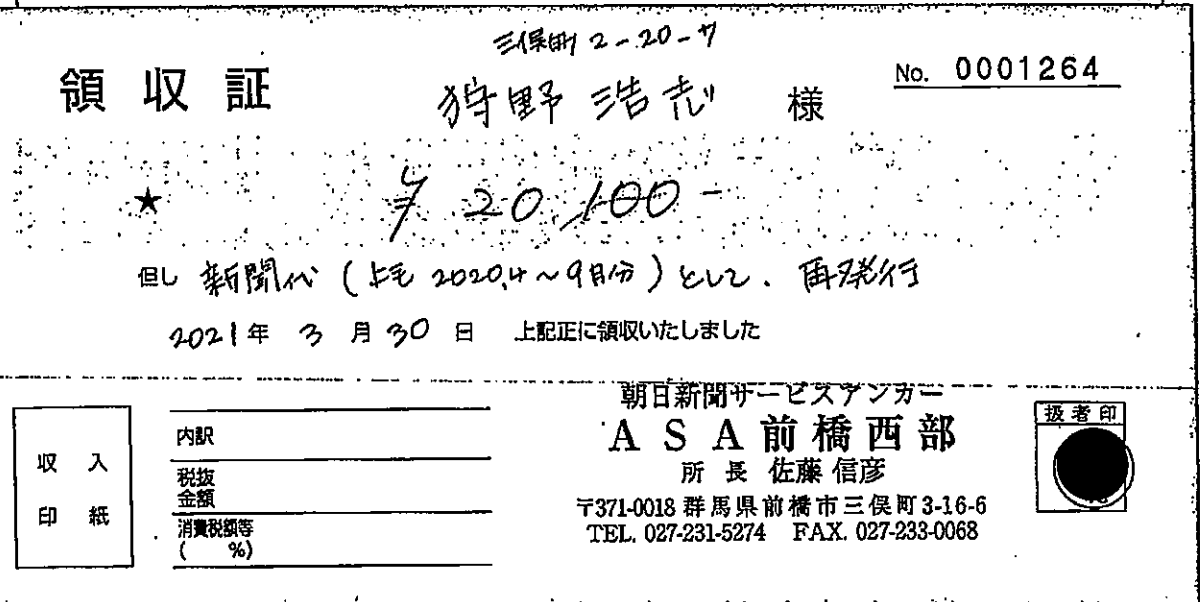 三俣町 2-20-7
領収証
狩野 浩志 様
No. 0001264
★
¥ 20,100-
但し 新聞代 (上毛 2020.4〜9月分) として. 再発行
2021年 3月 30日 上記正に領収いたしました
朝日新聞サービスアンカー
ASA前橋西部
所長 佐藤 信彦
〒371-0018 群馬県前橋市三俣町3-16-6
TEL. 027-231-5274 FAX. 027-233-0068
収入
印紙
内訳
税抜
金額
消費税額等
( %)
扱者印